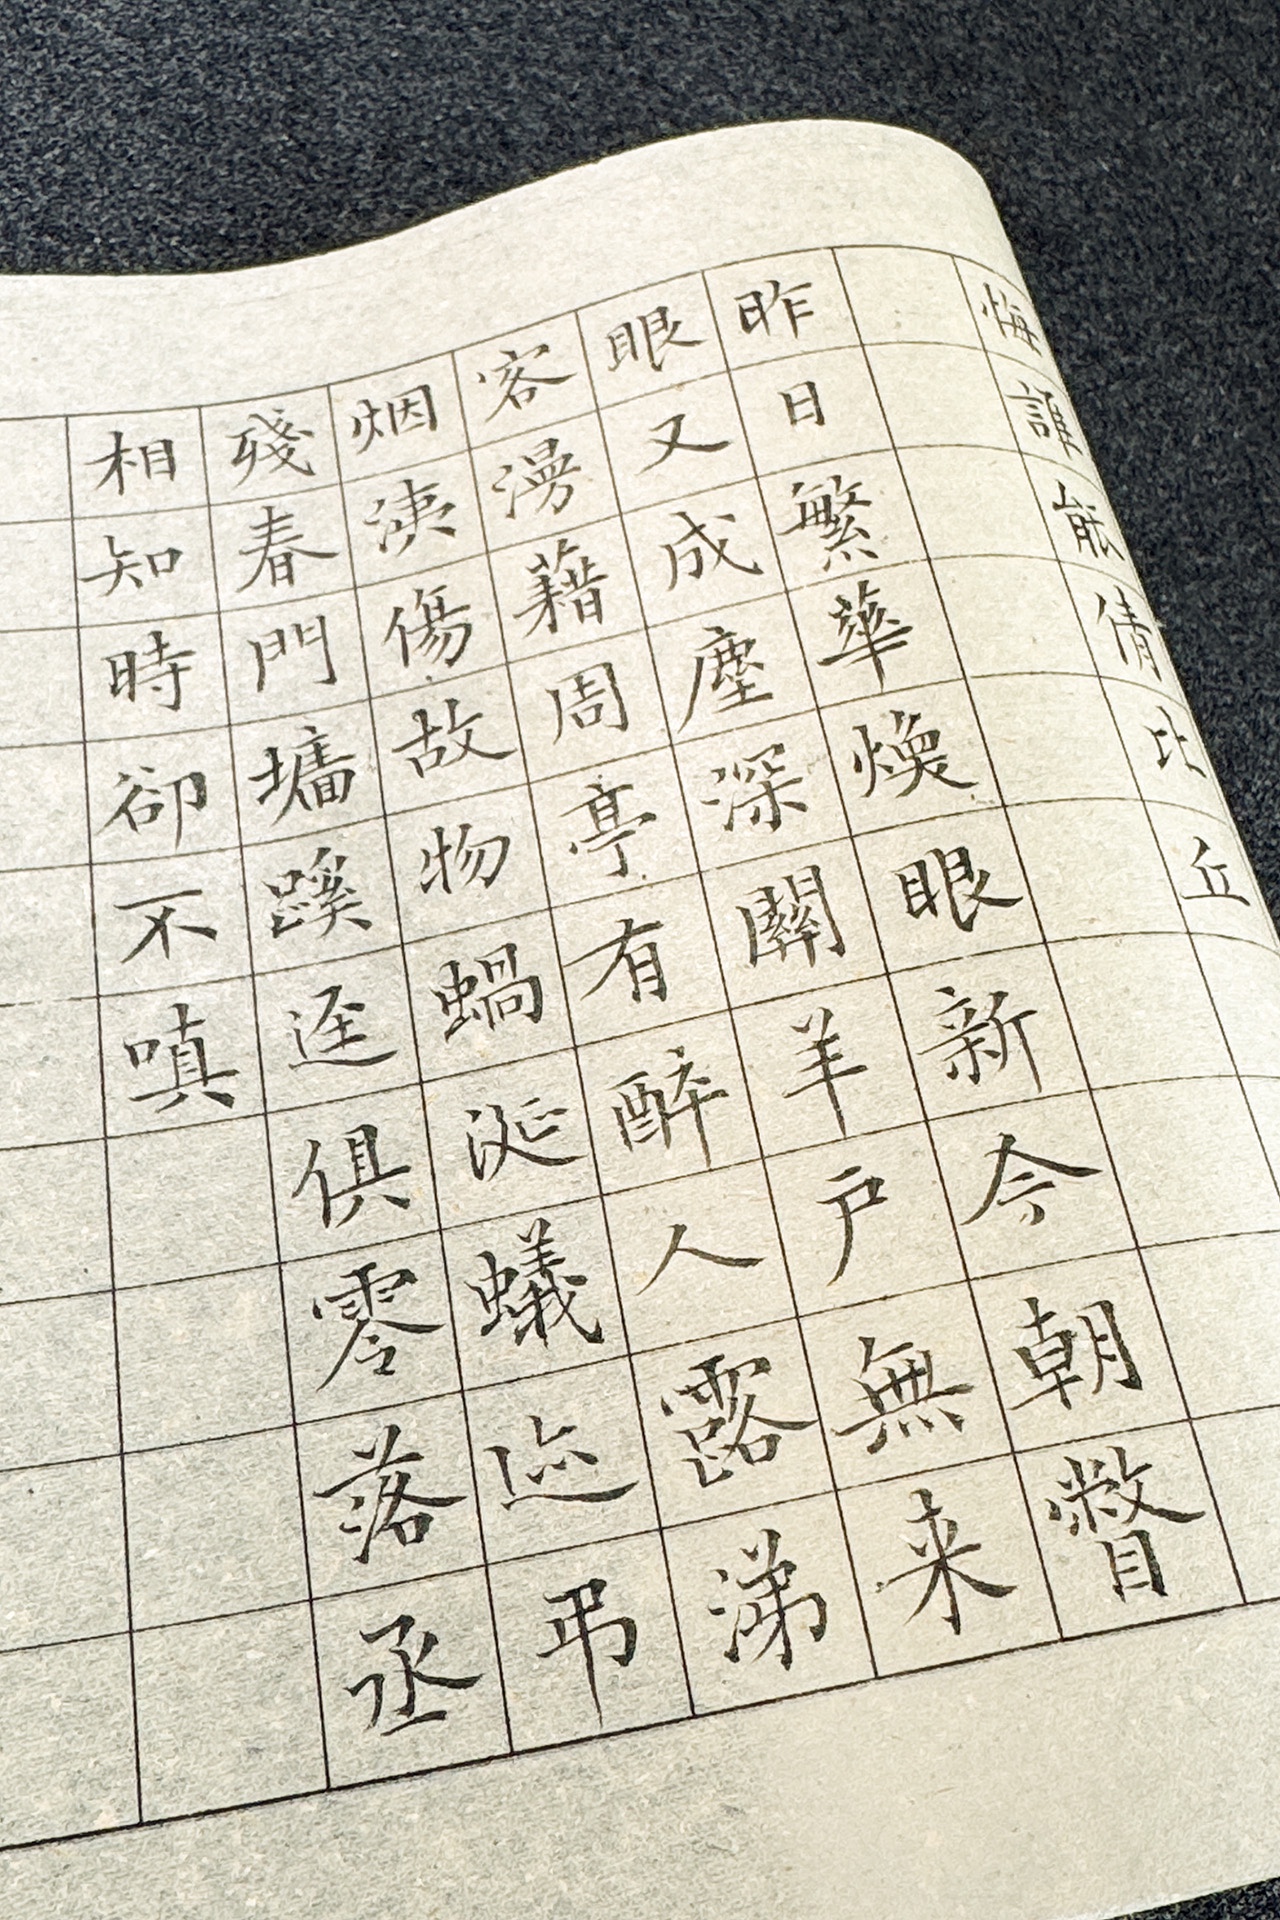 悔誰能倩比丘
昨日繁華煥眼新今朝瞥
眼又成塵深關羊戶無来
客漫藉周亭有醉人露涕
烟洟傷故物蝸涎蟻迹弔
殘春門墻蹊逕俱零落丞
相知時卻不嗔